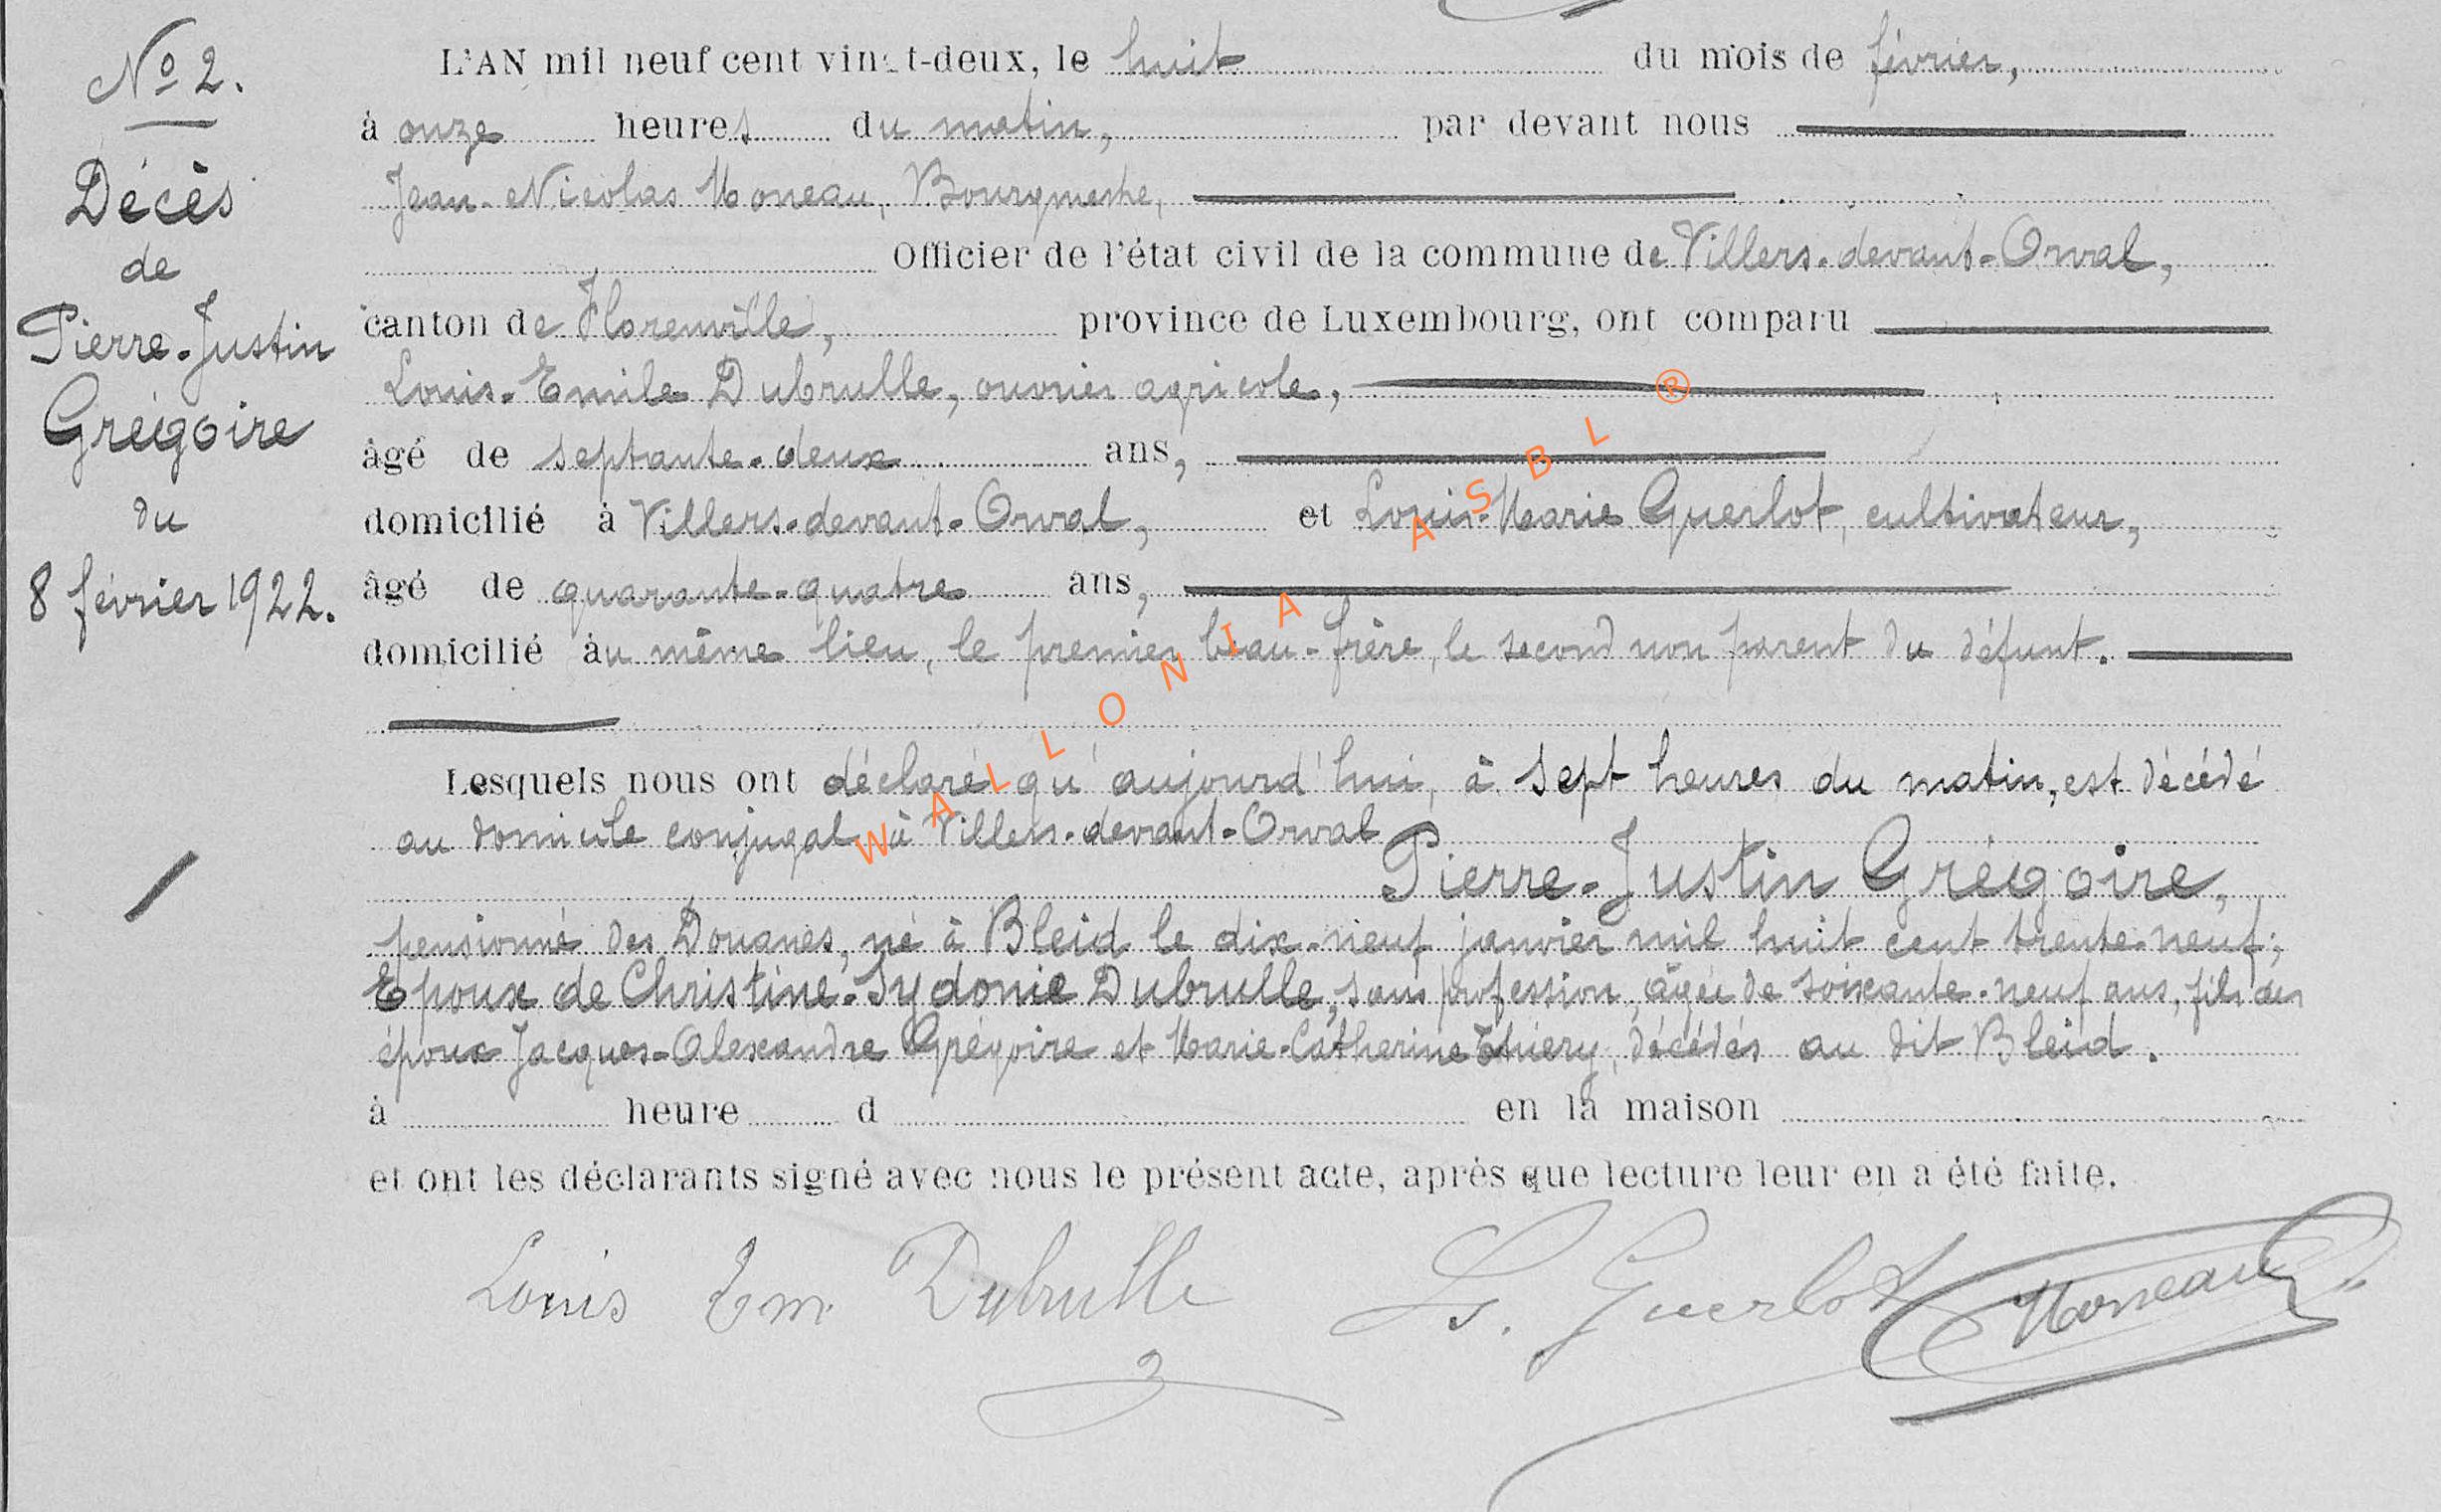 No 2.
Décès
de
Pierre-Justin
Grégoire
du
8 février 1922.
L'AN mil neuf cent vingt-deux, le huit du mois de février,
à onze heures du matin, par devant nous
Jean-Nicolas Moneau, Bourgmestre,
Officier de l'état civil de la commune de Villers-devant-Orval,
canton de Florenville, province de Luxembourg, ont comparu
Louis-Emile Dubrulle, ouvrier agricole,
âgé de septante-deux ans,
domicilié à Villers-devant-Orval, et Louis-Marie Guerlot, cultivateur,
âgé de quarante-quatre ans,
domicilié au même lieu, le premier beau-frère, le second non parent du défunt.
Lesquels nous ont déclaré qu'aujourd'hui, à sept heures du matin, est décédé
au domicile conjugal à Villers-devant-Orval
Pierre-Justin Grégoire,
pensionné des Douanes, né à Bleid le dix-neuf janvier mil huit cent trente-neuf;
Epoux de Christine-Sydonie Dubrulle, sans profession, âgée de soixante-neuf ans, fils des
époux Jacques-Alexandre Grégoire et Marie-Catherine Thiery, décédés au dit Bleid.
à heure d en la maison
et ont les déclarants signé avec nous le présent acte, après que lecture leur en a été faite.
Louis Em. Dubrulle Ls. Guerlot Moneau
WALLONIA ASBL ®